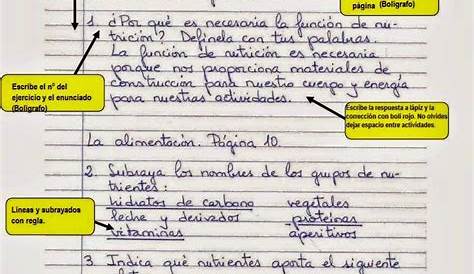 página (Boligrafo)
1. ¿Por qué es necesaria la función de nu-
trición? Definela con tus palabras.
La función de nutrición es necesaria
porque nos proporciona materiales de
construcción para nuestro cuerpo y energía
para nuestras actividades.
Escribe el nº del
ejercicio y el enunciado
(Boligrafo)
Escribe la respuesta a lápiz y la
corrección con boli rojo. No olvides
dejar espacio entre actividades.
La alimentación. Página 10.
2. Subraya los nombres de los grupos de nu-
trientes:
hidratos de carbono vegetales
leche y derivados proteínas
vitaminas aperitivos
Lineas y subrayados
con regla.
3. Indica qué nutrientes aporta el siguiente